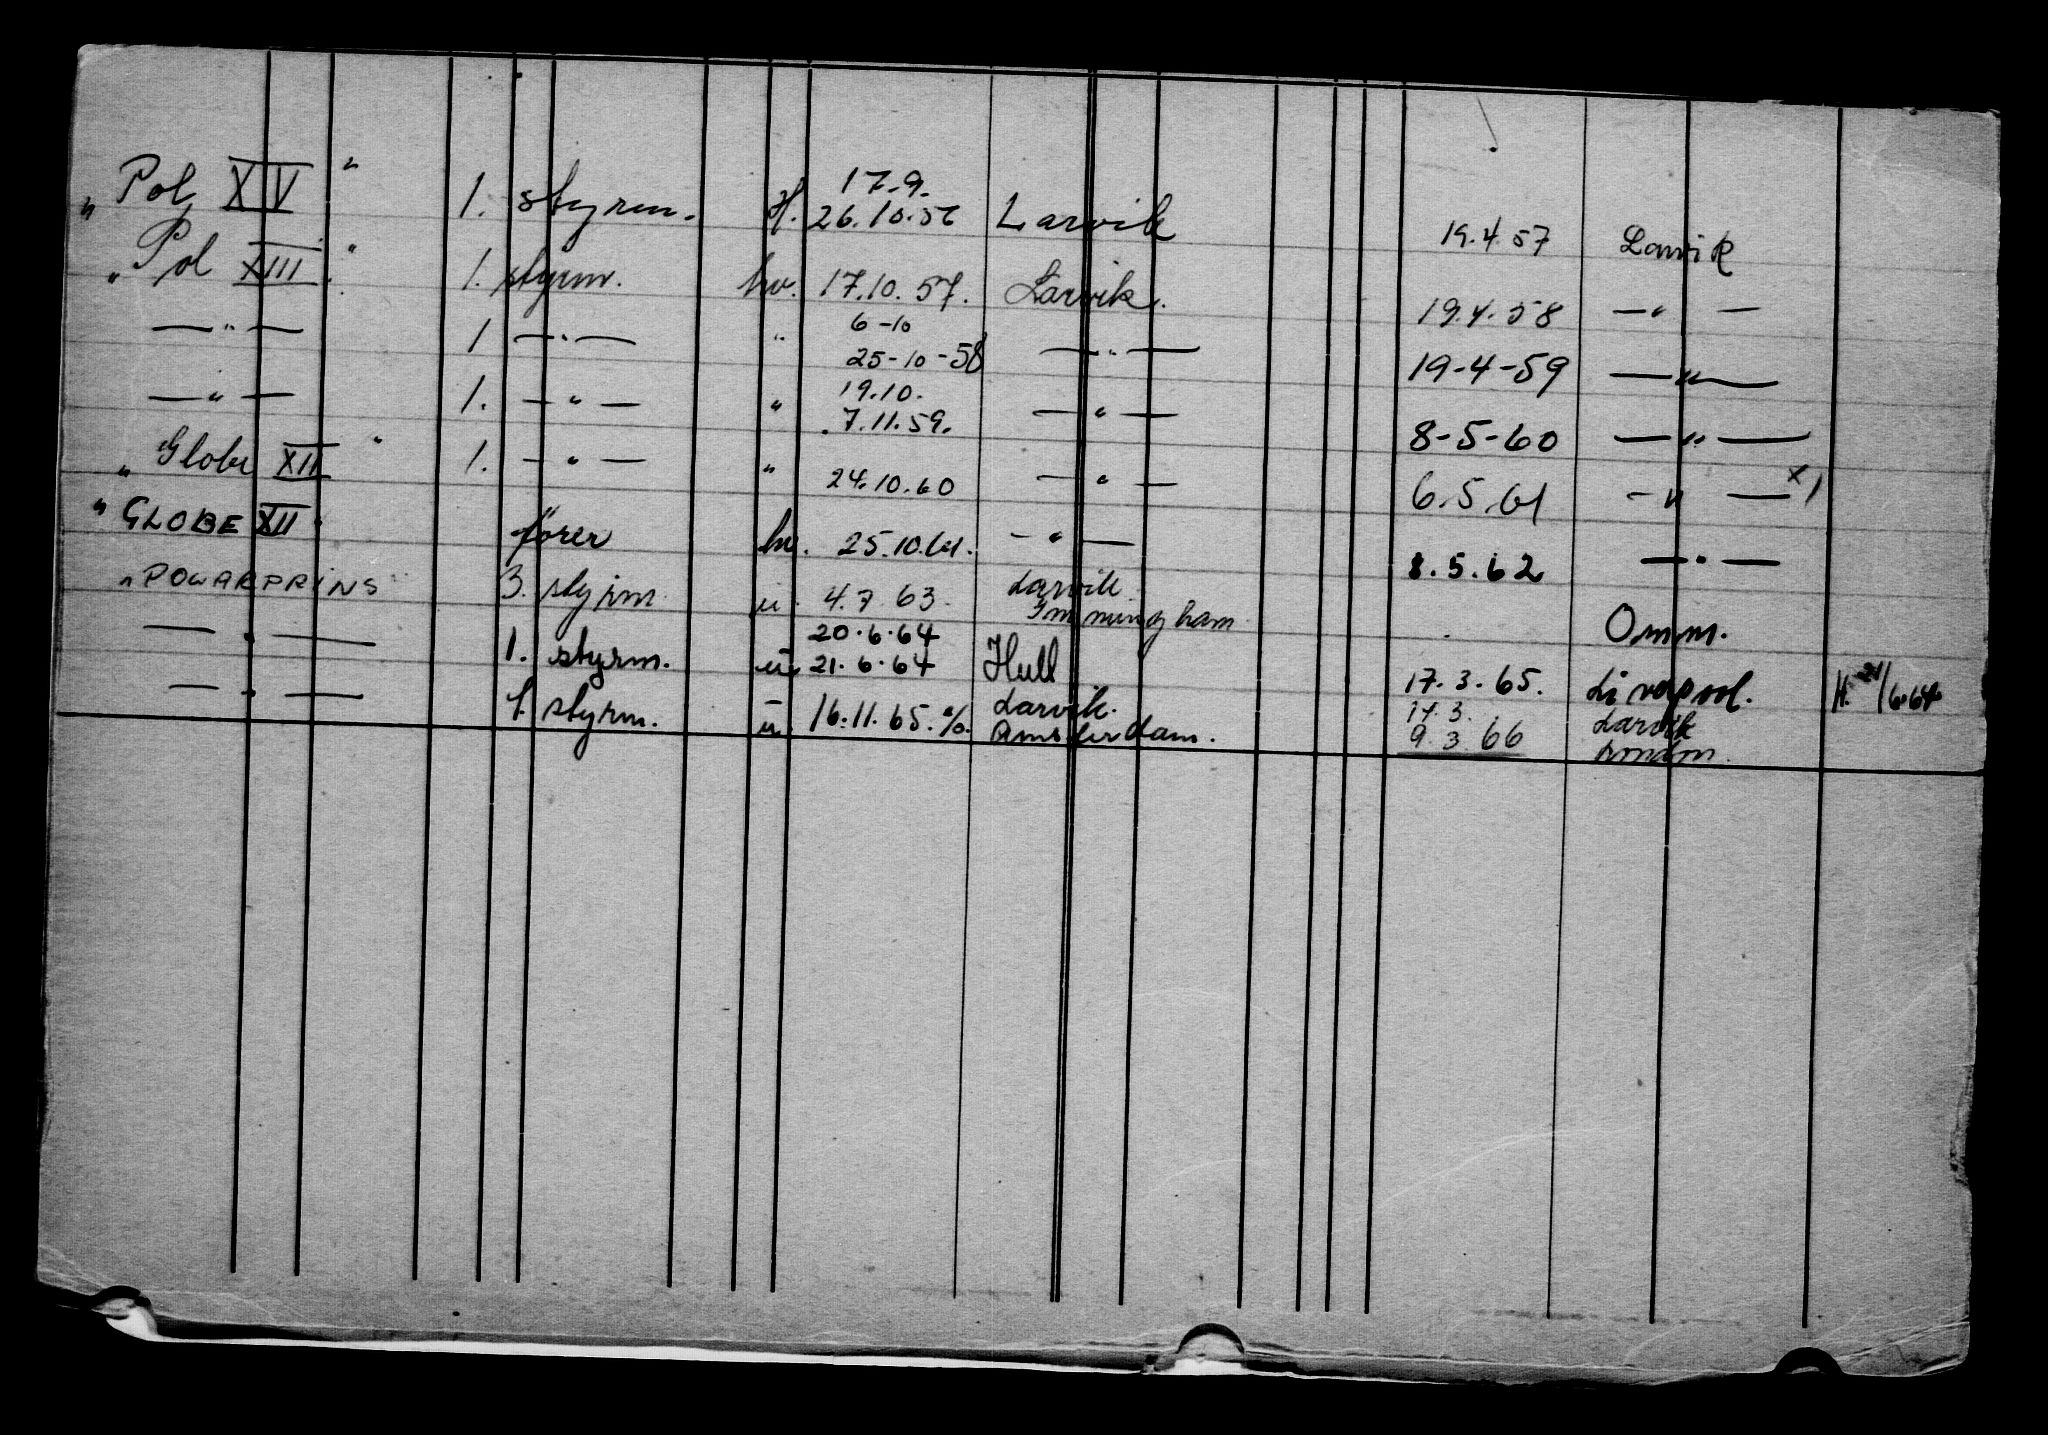 „ Pol XIV " 1. styrm. H. 17.9. 26.10.56 Larvik 19.4.57 Larvik
„ Pol XIII " 1. styrm. hv. 17.10.57. Larvik. 19.4.58 —„—
—„— 1 —„— „ 6-10 25-10-58 —„— 19-4-59 —„—
—„— 1. —„— „ 19.10. 7.11.59. —„— 8-5-60 —„—
„ Globe XII " 1. —„— „ 24.10.60 —„— 6.5.61 —„— x)
" GLOBE XII " fører hv. 25.10.61. —„— 8.5.62 —„—
" POLARPRINS " 3. styrm. u. 4.7.63. Larvik. Immingham Omm.
—„— 1. styrm. u 20.6.64 21.6.64 Hull 17.3.65. Liverpool. H. 21/6.64
—„— 1. styrm. u. 16.11.65. Larvik. Amsterdam. 17.3. 9.3.66 Larvik London.